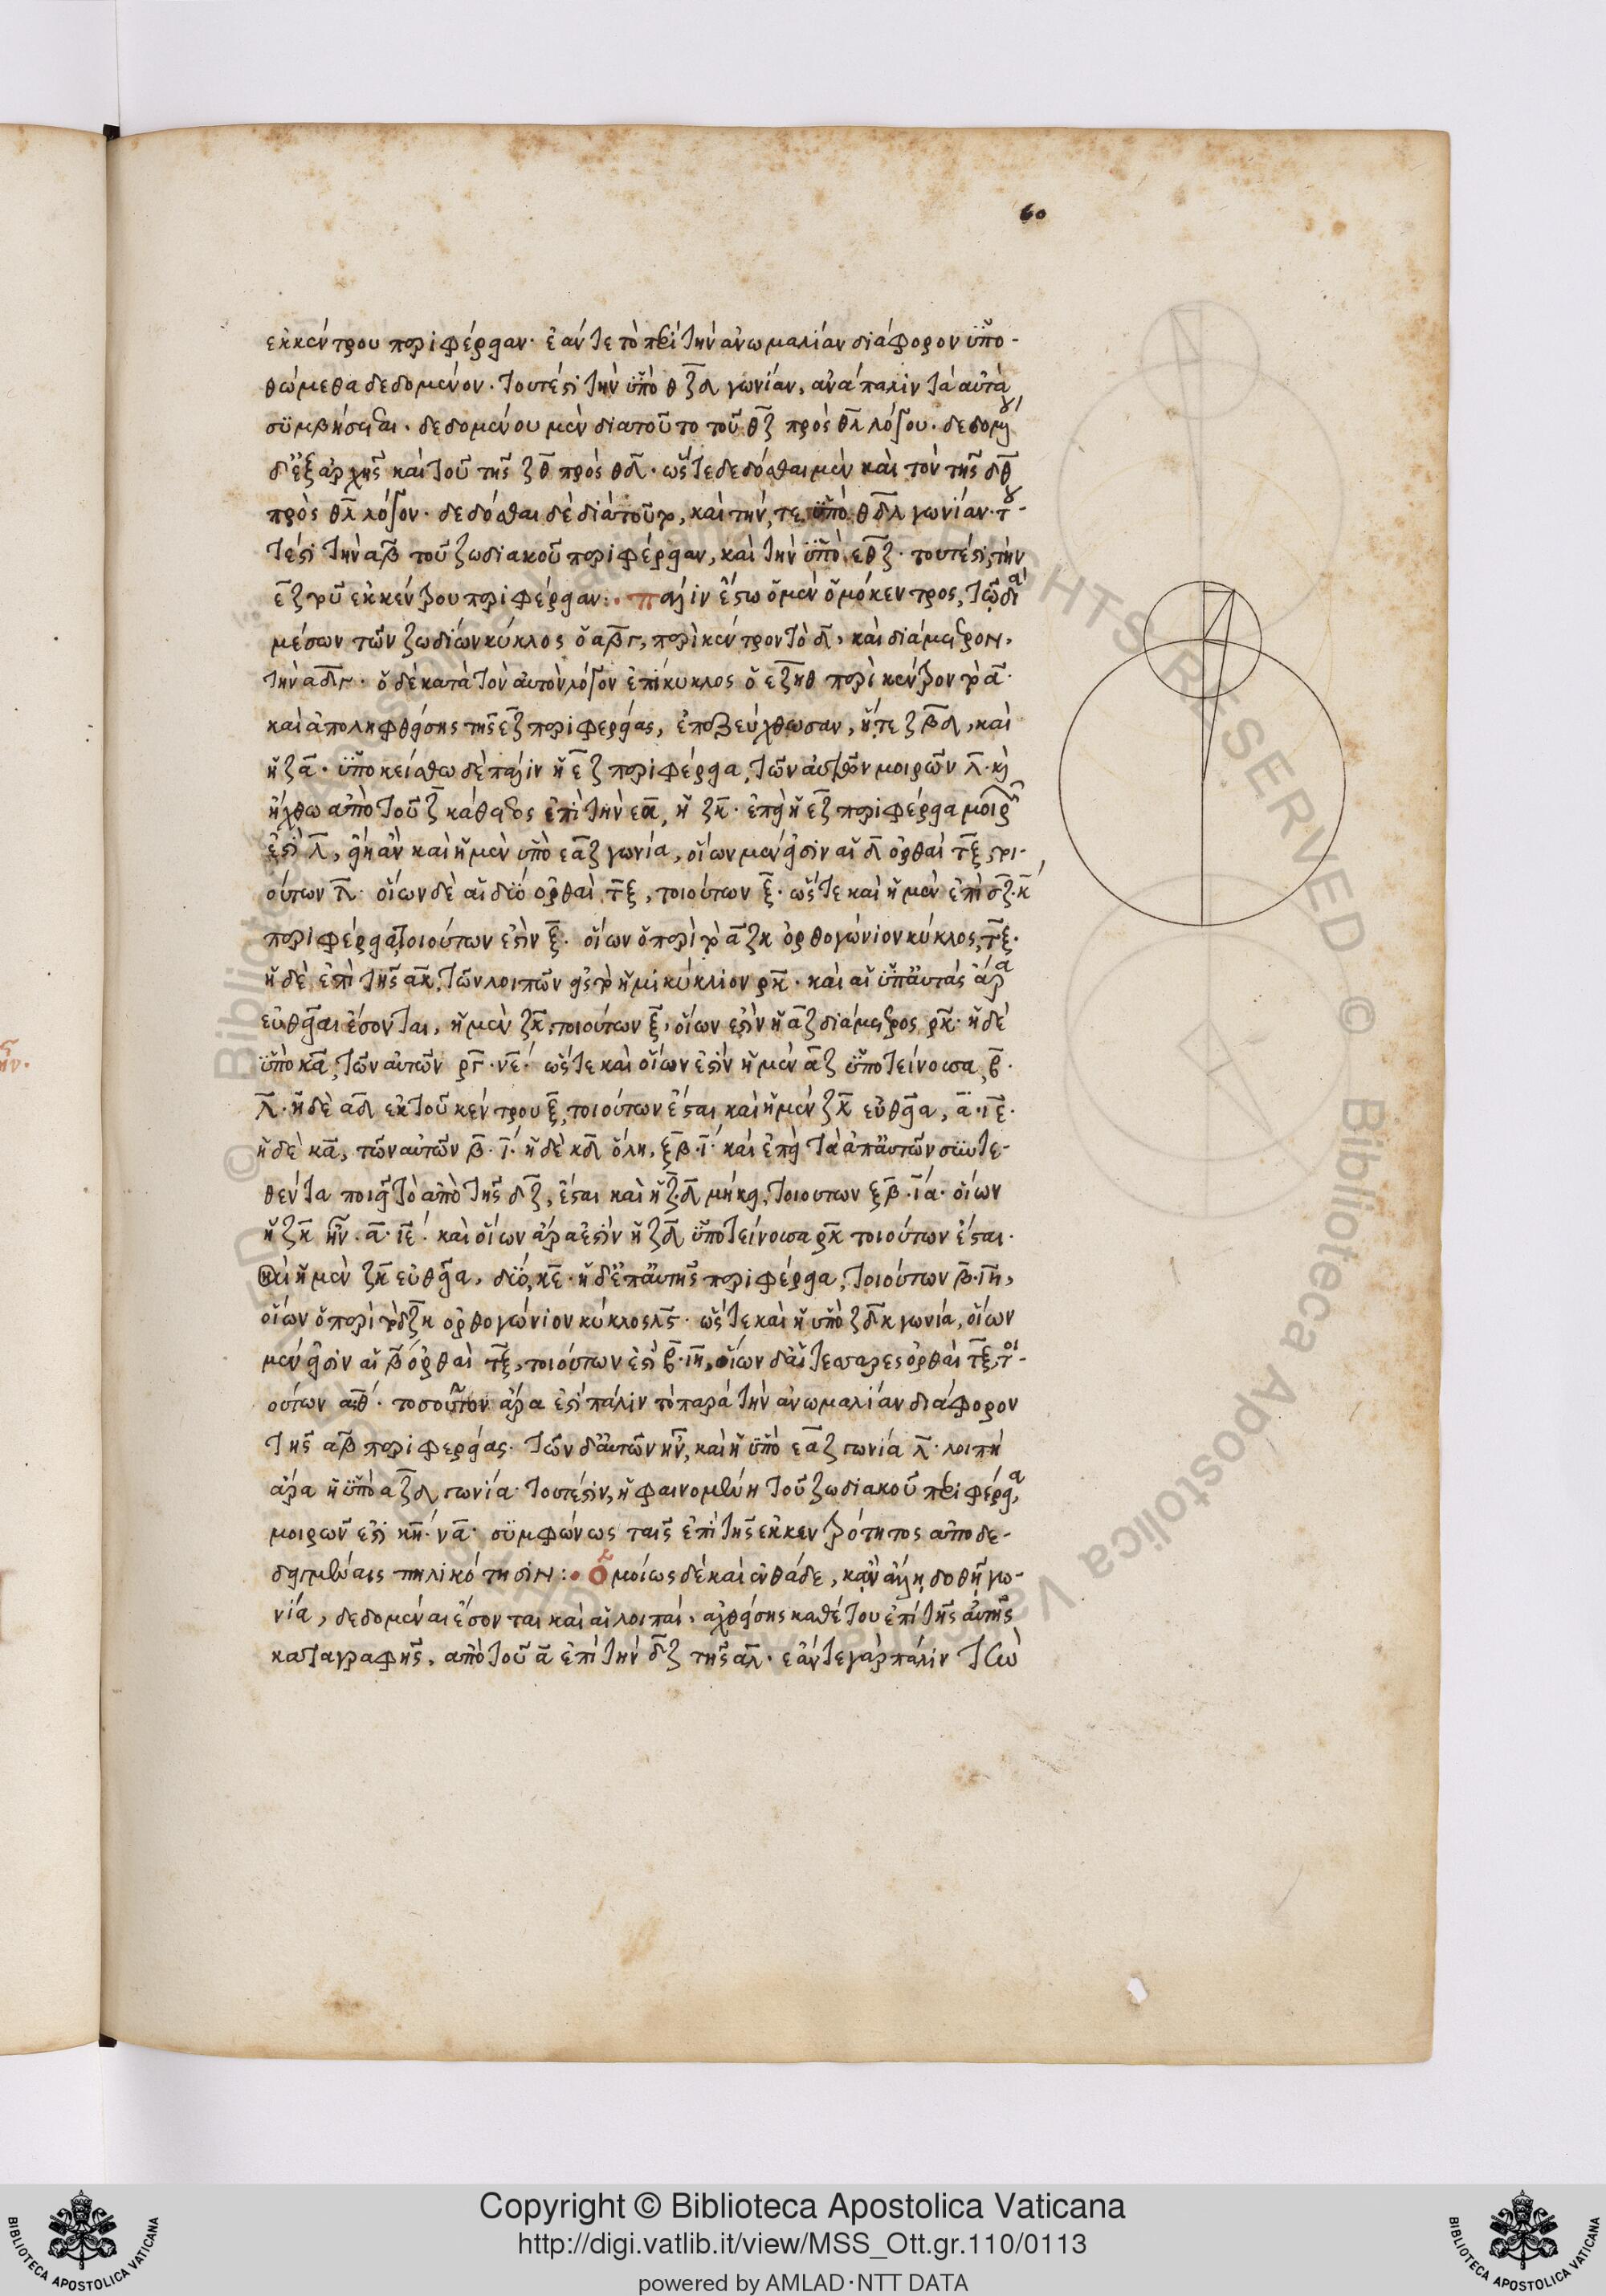 60
ἐκκέντρου περιφέρειαν· ἐάν τε τὸ περὶ τὴν ἀνωμαλίαν διάφορον ὑπο-
θώμεθα δεδομένον. τουτέστι τὴν ὑπὸ θζδ γωνίαν, ἀνάπαλιν τὰ αὐτὰ
συμβήσεται. δεδομένου μὲν διὰ τοῦτο τοῦ θζ πρὸς θλ λόγου. δεδομ
δ' ἐξ ἀρχῆς καὶ τοῦ τῆς ζθ πρὸς θδ. ὥστε δεδόσθαι μὲν καὶ τὸν τῆς δθ
πρὸς θλ λόγον. δεδόσθαι δὲ διὰ τοῦτο, καὶ τήν, τε ὑπὸ θδλ γωνίαν. του
τέστι τὴν αβ τοῦ ζωδιακοῦ περιφέρειαν, καὶ τὴν ὑπὸ εθζ. τουτέστι τὴν
εζ τοῦ ἐκκέντρου περιφέρειαν:. πάλιν ἔστω ὁ μὲν ὁμόκεντρος, τῷ διὰ
μέσων τῶν ζωδίων κύκλος ὁ αβγ, περὶ κέντρον τὸ δ, καὶ διάμετρον,
τὴν αδγ. ὁ δὲ κατὰ τὸν αὐτὸν λόγον ἐπίκυκλος ὁ εζηθ περὶ κέντρον τὸ α.
καὶ ἀποληφθείσης τῆς εζ περιφερείας, ἐπεζεύχθωσαν, ἥ τε ζβδ, καὶ
ἡ ζα. ὑποκείσθω δὲ πάλιν ἡ εζ περιφέρεια, τῶν αὐτῶν μοιρῶν λ. κὶ
ἤχθω ἀπὸ τοῦ ζ κάθετος ἐπὶ τὴν εα, ἡ ζκ. ἐπεὶ ἡ εζ περιφέρεια μοιρῶν
ἐστὶ λ, εἴη ἂν καὶ ἡ μὲν ὑπὸ εαζ γωνία, οἵων μέν εἰσιν αἱ δ ὀρθαὶ τξ, τοι-
ούτων λ. οἵων δὲ αἱ δύο ὀρθαὶ τξ, τοιούτων ξ. ὥστε καὶ ἡ μὲν ἐπὶ τῆς ζκ
περιφέρεια, τοιούτων ἐστὶν ξ. οἵων ὁ περὶ τὸ αζκ ὀρθογώνιον κύκλος, τξ.
ἡ δὲ ἐπὶ τῆς ακ, τῶν λοιπῶν εἰς τὸ ἡμικύκλιον ρκ. καὶ αἱ ὑπ' αὐτὰς ἄρα
εὐθεῖαι ἔσονται, ἡ μὲν ζκ, τοιούτων ξ, οἵων ἐστὶν ἡ αζ διάμετρος ρκ. ἡ δὲ
ὑπὸ κα, τῶν αὐτῶν ργ. νε. ὥστε καὶ οἵων ἐστὶν ἡ μὲν αζ ὑποτείνουσα, β.
λ. ἡ δὲ αδ ἐκ τοῦ κέντρου ξ, τοιούτων ἔσται καὶ ἡ μὲν ζκ εὐθεῖα, α. ιε.
ἡ δὲ κα, τῶν αὐτῶν β. ι. ἡ δὲ κδ ὅλη, ξβ. ι. καὶ ἐπεὶ τὰ ἀπ' αὐτῶν συντε-
θέντα ποιεῖ τὸ ἀπὸ τῆς δζ, ἔσται καὶ ἡ ζδ μήκει, τοιούτων ξβ. ια. οἵων
ἡ ζκ ἦν. α. ιε. καὶ οἵων ἄρα ἐστὶν ἡ ζδ ὑποτείνουσα ρκ τοιούτων ἔσται.
καὶ ἡ μὲν ζκ εὐθεῖα, δύο, κε. ἡ δ' ἐπ' αὐτῆς περιφέρεια, τοιούτων β. ιη,
οἵων ὁ περὶ τὸ δζκ ὀρθογώνιον κύκλος . ὥστε καὶ ἡ ὑπὸ ζδκ γωνία, οἵων
μέν εἰσιν αἱ β ὀρθαὶ τξ, τοιούτων ἐστὶ β. ιη, οἵων δ' αἱ τέσσαρες ὀρθαὶ τξ, τοι-
ούτων αθ. τοσοῦτον ἄρα ἐστὶ πάλιν τὸ παρὰ τὴν ἀνωμαλίαν διάφορον
τῆς αβ περιφερείας. τῶν δ' αὐτῶν ἦν, καὶ ἡ ὑπὸ εαζ γωνία λ. λοιπὴ
ἄρα ἡ ὑπὸ αζδ γωνία. τουτέστιν, ἡ φαινομένη τοῦ ζωδιακοῦ περιφέρεια,
μοιρῶν ἐστὶ κη. να. συμφώνως ταῖς ἐπὶ τῆς ἐκκεντρότητος ἀποδε-
δειγμέναις πηλικότησιν:. ὁμοίως δὲ καὶ ἐνθάδε, κἂν ἄλλη δοθῇ γω-
νία, δεδομέναι ἔσονται καὶ αἱ λοιπαί, ἀχθείσης καθέτου ἐπὶ τῆς αὐτῆς
καταγραφῆς, ἀπὸ τοῦ α ἐπὶ τὴν δζ τῆς αλ. ἐάν τε γὰρ πάλιν τὴν
Copyright © Biblioteca Apostolica Vaticana
http://digi.vatlib.it/view/MSS_Ott.gr.110/0113
powered by AMLAD·NTT DATA
BIBLIOTECA APOSTOLICA VATICANA
BIBLIOTECA APOSTOLICA VATICANA